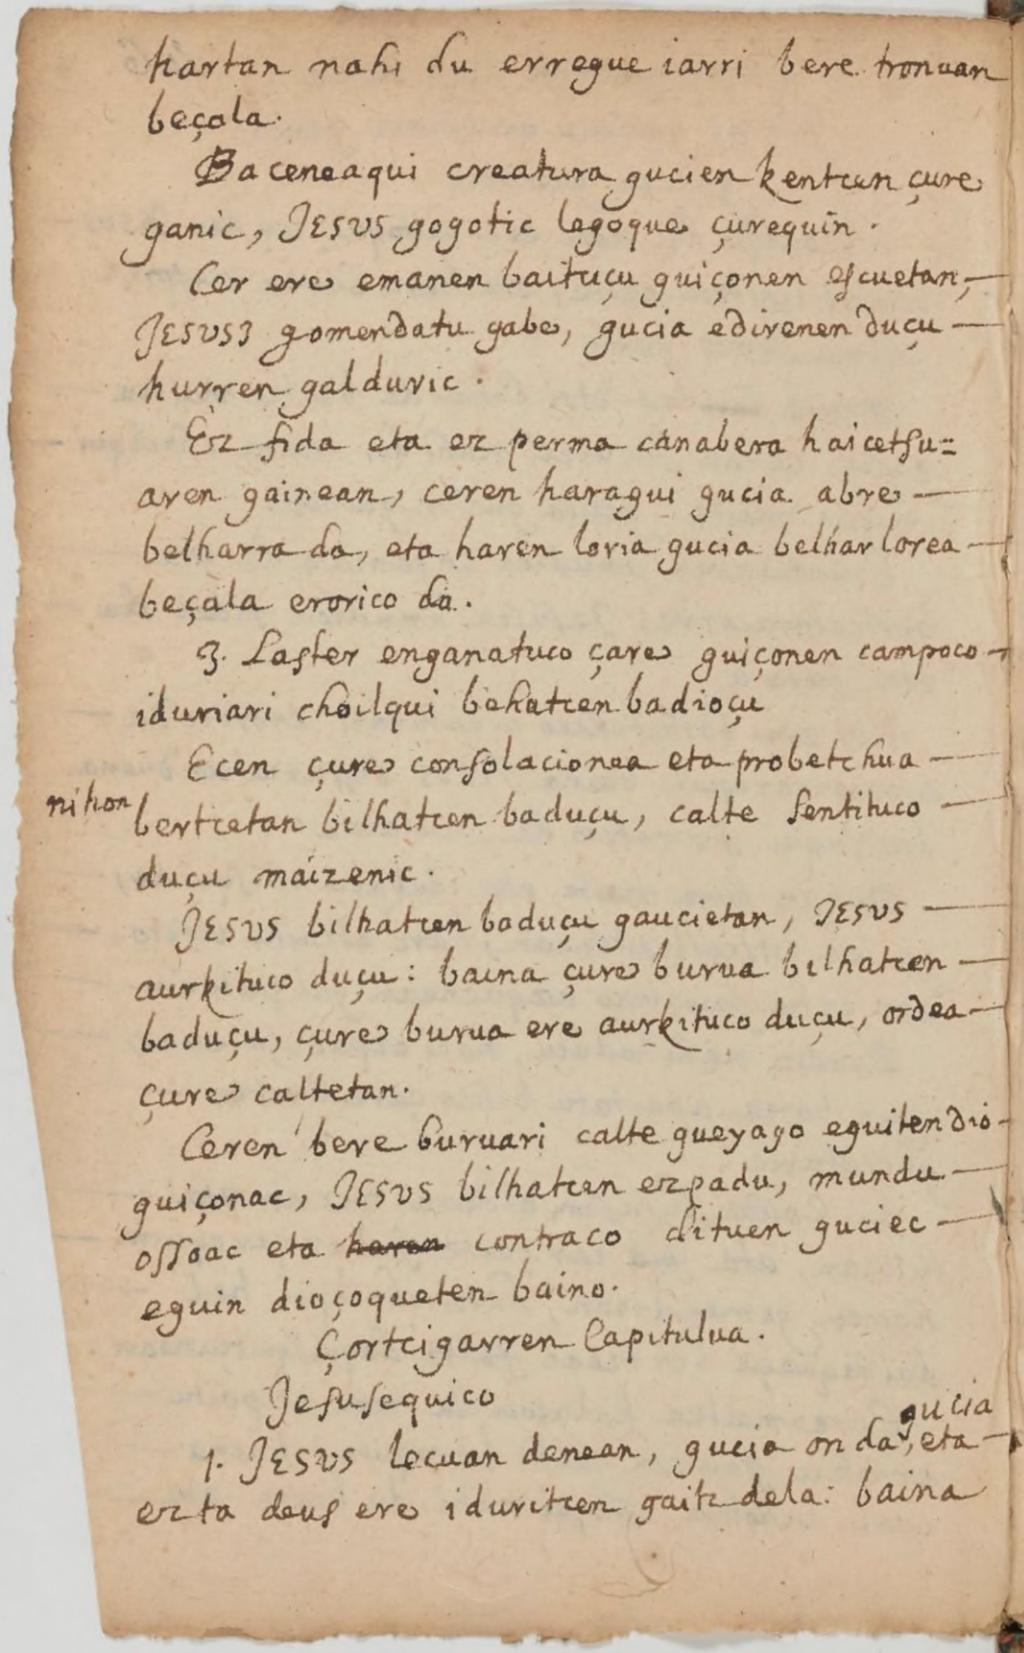 hartan nahi du erregue iarri bere tronuan
beçala.
Baceneaqui creatura gucien kentcen çure
ganic, JESVS gogotic legoque çurequin.
Cer ere emanen baituçu guiçonen escuetan,
JESVSI gomendatu gabe, gucia edirenen duçu
hurren galduric.
Ez fida eta ez perma canabera haicetsu=
aren gainean, ceren haragui gucia abre
belharra da, eta haren loria gucia belhar lorea
beçala erorico da.
3. Laster enganatuco çare guiçonen campoco
iduriari choilqui behatcen badioçu
Ecen çure consolacionea eta probetchua
nihon bertcetan bilhatcen baduçu, calte sentituco
duçu maizenic.
JESVS bilhatcen baduçu gaucietan, JESVS
aurkituco duçu: baina çure burua bilhatcen
baduçu, çure burua ere aurkituco duçu, ordea
çure caltetan.
Ceren bere buruari calte gueyago eguiten dio
guiçonac, JESVS bilhatcen ezpadu, mundu
ossoac eta haren contraco dituen guciec
eguin dioçoqueten baino.
Çortcigarren Capitulua.
Jesusequico
gucia
1. JESVS lecuan denean, gucia on da, eta
ez ta deus ere iduritcen gaitz dela: baina